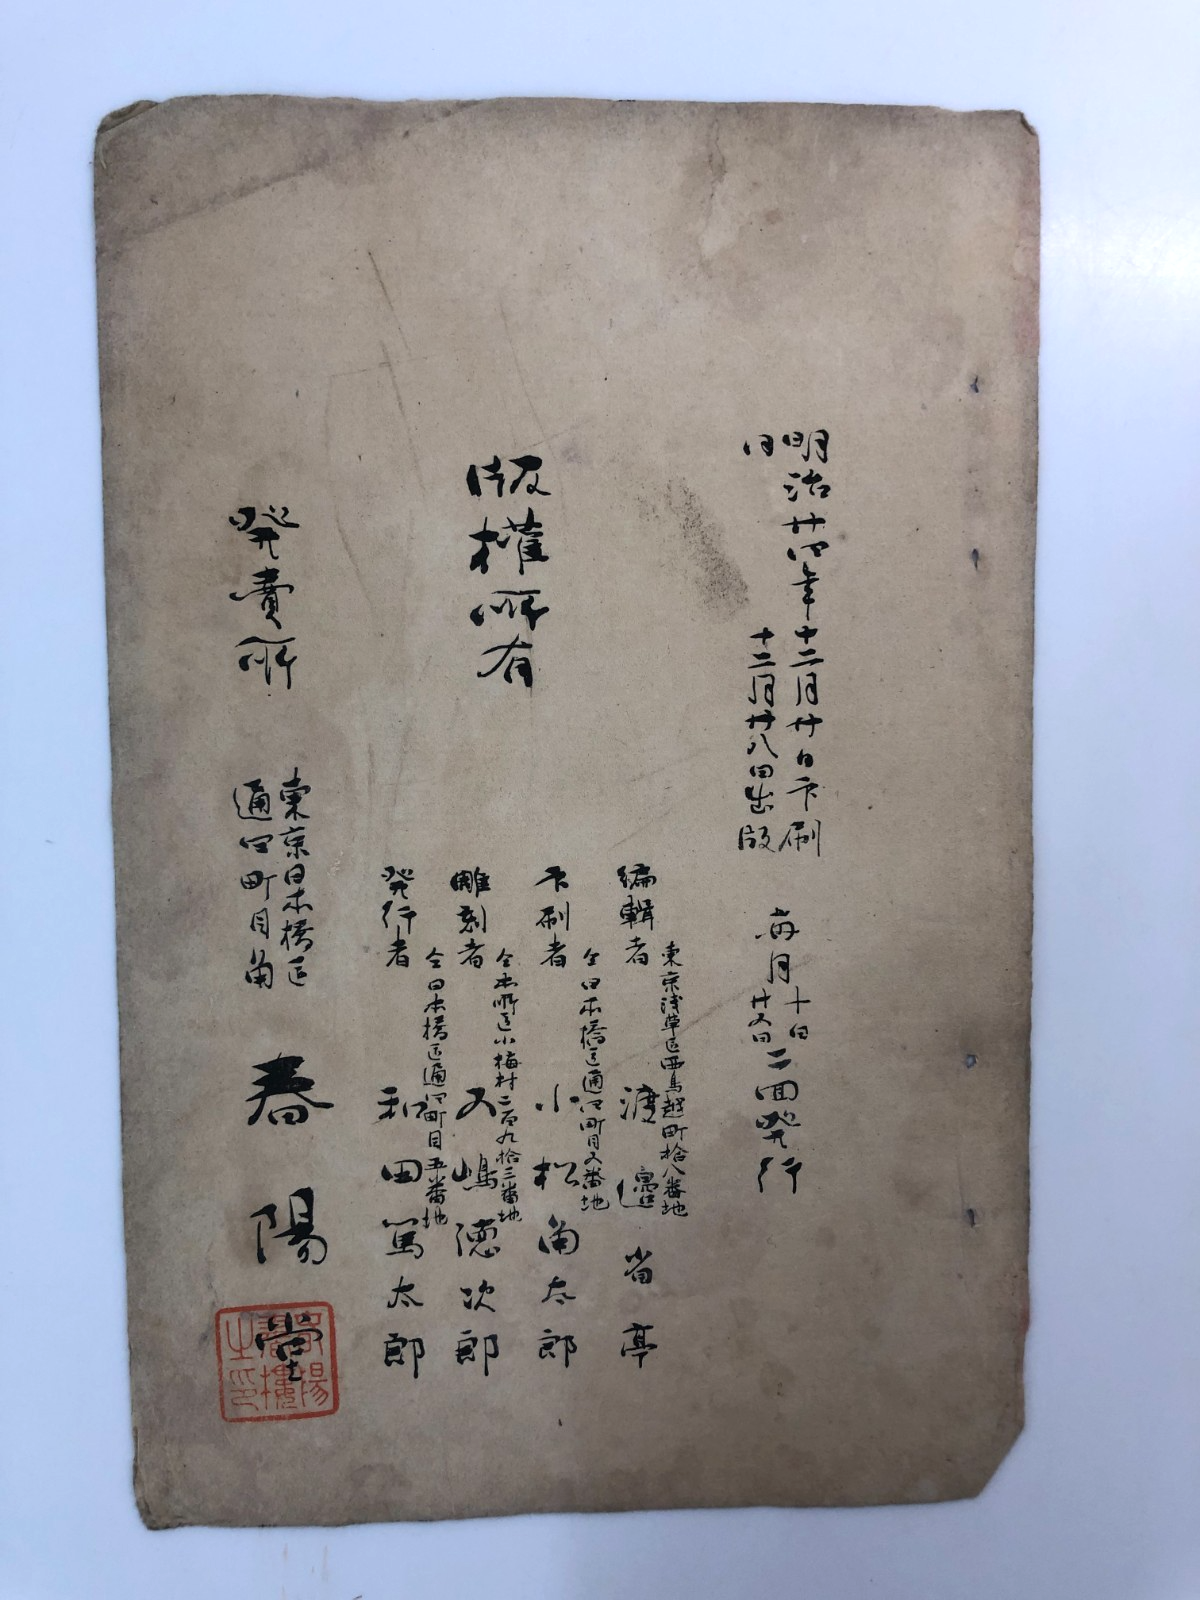 明治廿四年十二月廿日印刷
同十二月廿八日出版
毎月十日廿五日二回発行
版權所有
東京浅草区西鳥越町拾八番地
編輯者 渡邉省亭
仝日本橋区通四町目五番地
印刷者 小松角太郎
仝本所区小梅村二百九拾三番地
雕刻者 五嶋德次郎
仝日本橋区通四町目五番地
発行者 和田篤太郎
発賣所
東京日本橋区
通四町目角
春陽堂